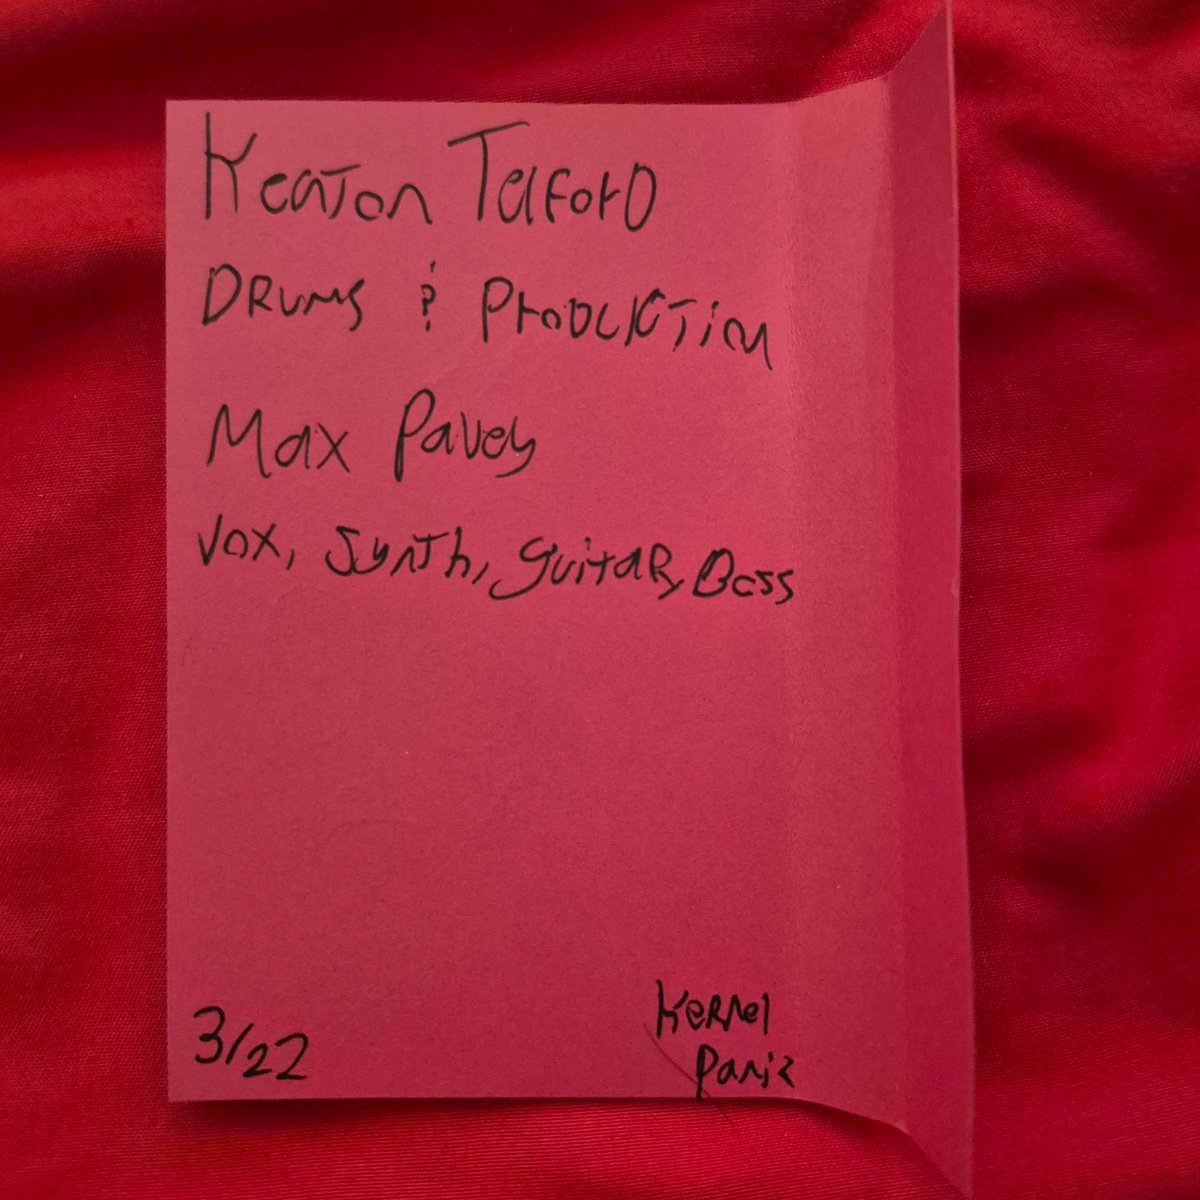 Keaton Telford
Drums & Production
Max Pavey
Vox, Synth, guitar, Bass
3/22
Kernel
Panic